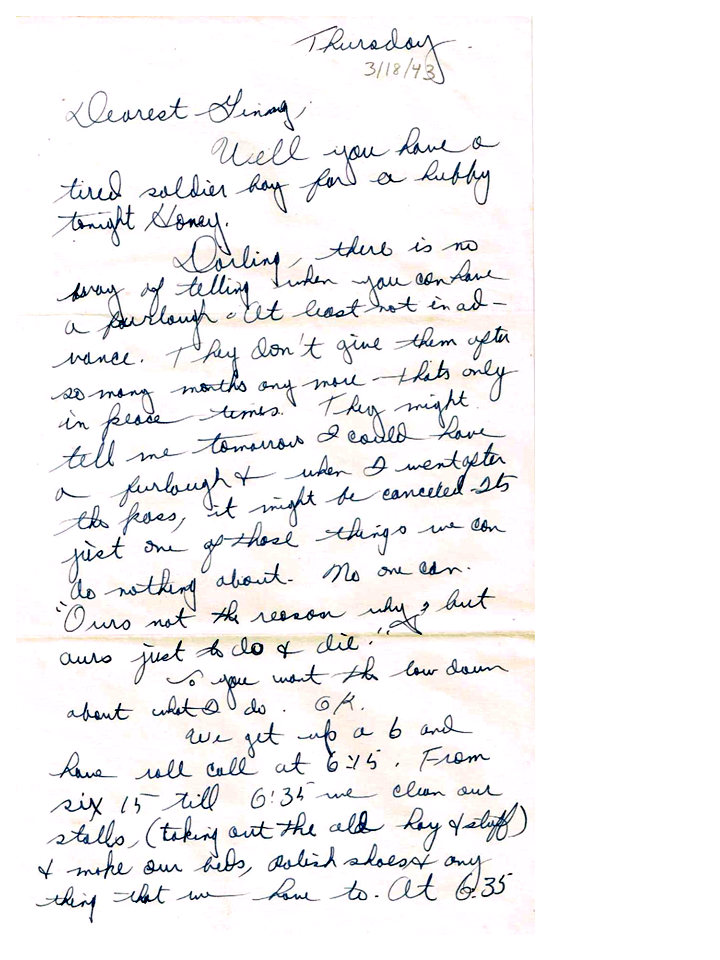 Thursday.
3/18/43
Dearest Ginny,
Well you have a
tired soldier boy for a hubby
tonight Honey.
Darling, there is no
way of telling when you can have
a furlough. At least not in ad-
vance. They don't give them after
so many months any more - thats only
in peace times. They might
tell me tomorrow I could have
a furlough & when I went after
the pass, it might be canceled. Its
just one of those things we can
do nothing about. No one can.
"Ours not the reason why, but
ours just to do & die."
So you want the low down
about what I do. OK.
We get up a 6 and
have roll call at 6:15. From
six 15 till 6:35 we clean our
stalls, (taking out the old hay & stuff)
& make our beds, polish shoes & any
thing that we have to. At 6:35